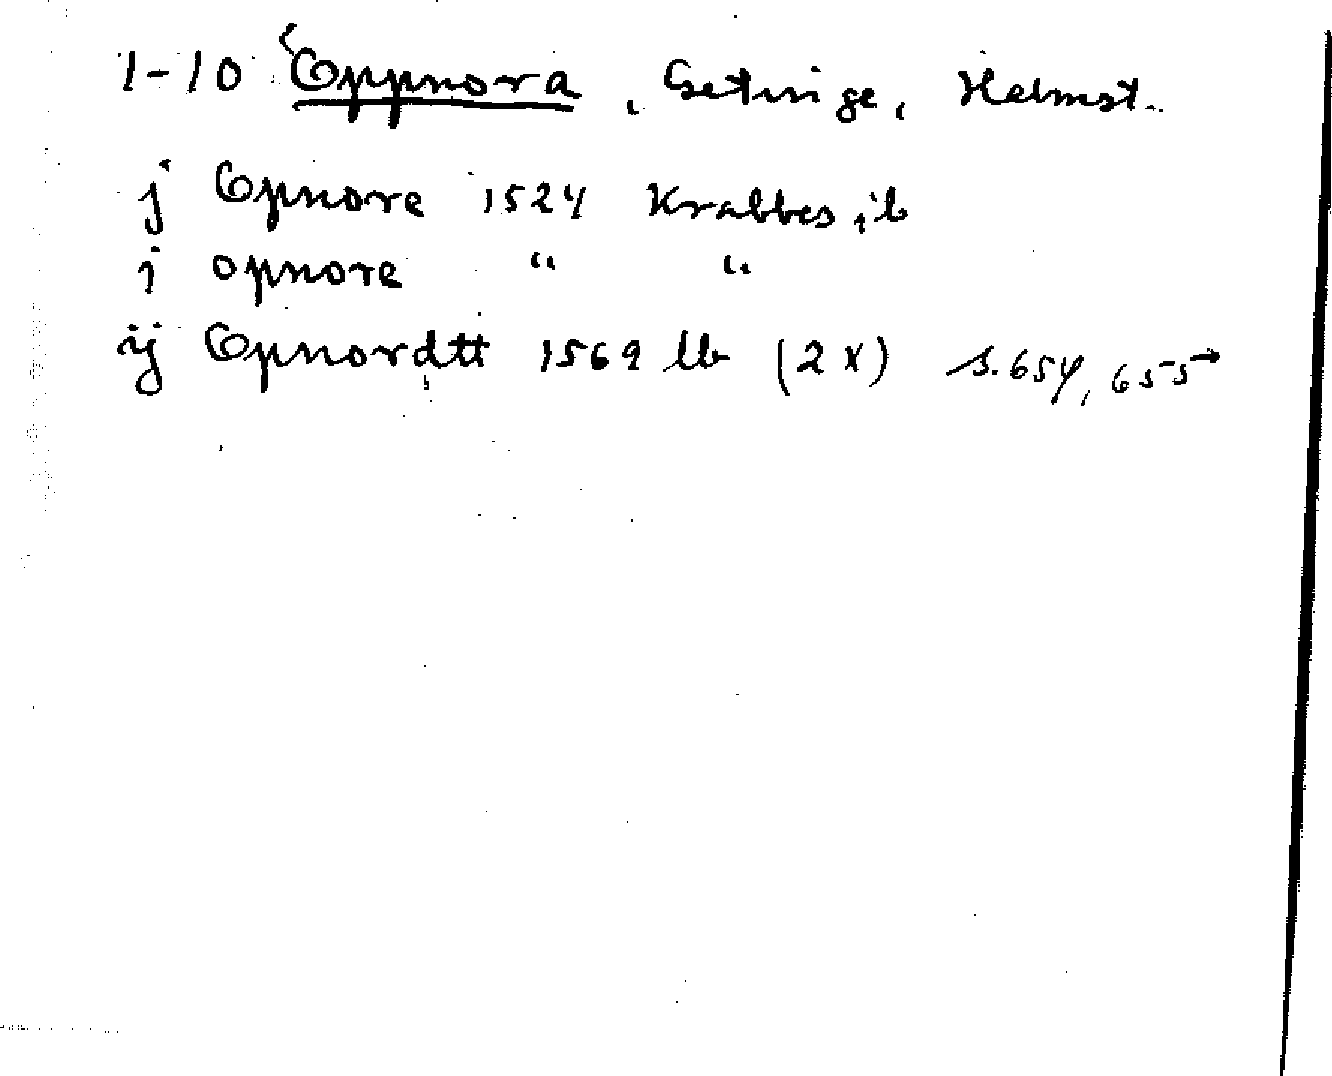 1-10 Oppnora, Getinge, Halmst.
j Opnore 1524 Krabbes jb
i opnore " "
ij Opnordtt 1569 lb (2x) s. 654, 655